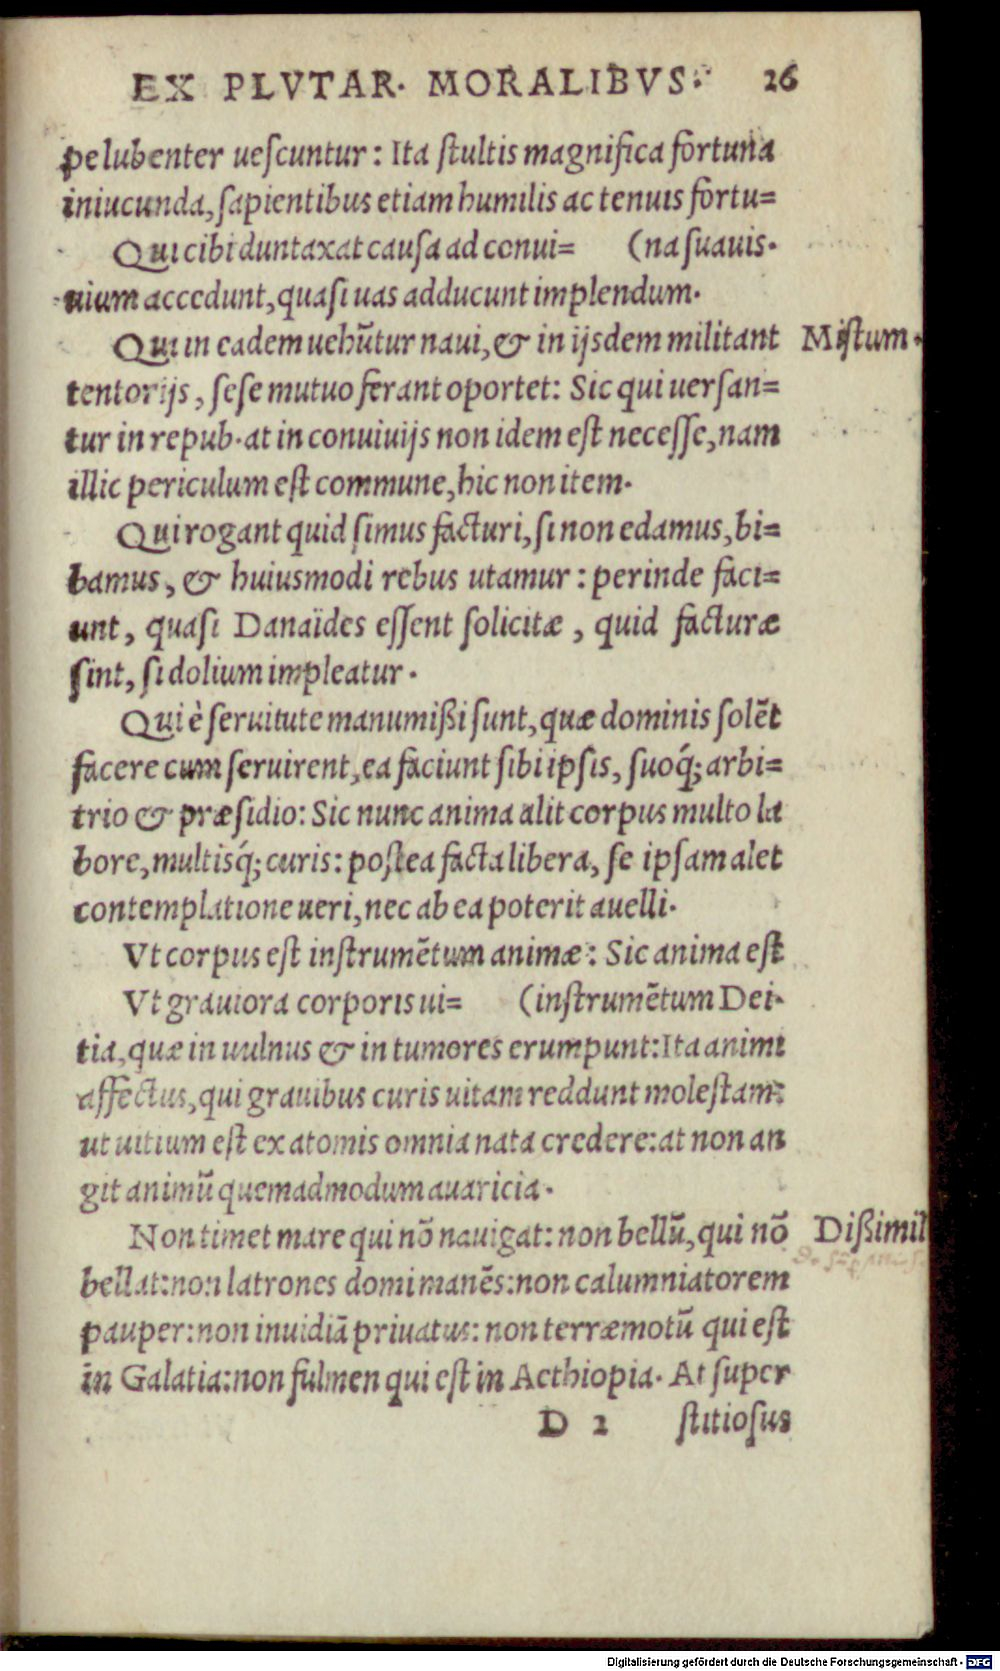 EX PLVTAR. MORALIBVS. 26
pe lubenter uescuntur: Ita stultis magnifica fortuna
iniucunda, sapientibus etiam humilis ac tenuis fortu=
Qui cibi duntaxat causa ad conui= (na suauis.
uium accedunt, quasi uas adducunt implendum.
Qui in eadem uehũtur naui, & in ijsdem militant Mistum.
tentorijs, sese mutuo ferant oportet: Sic qui uersan=
tur in repub. at in conuiuijs non idem est necesse, nam
illic periculum est commune, hic non item.
Qui rogant quid simus facturi, si non edamus, bi=
bamus, & huiusmodi rebus utamur: perinde faci=
unt, quasi Danaïdes essent solicitæ, quid facturæ
sint, si dolium impleatur.
Qui è seruitute manumißi sunt, quæ dominis solẽt
facere cum seruirent, ea faciunt sibi ipsis, suoq́; arbi=
trio & præsidio: Sic nunc anima alit corpus multo la
bore, multisq́; curis: postea facta libera, se ipsam alet
contemplatione ueri, nec ab ea poterit auelli.
Vt corpus est instrumẽtum animæ: Sic anima est
Vt grauiora corporis ui= (instrumẽtum Dei.
tia, quæ in uulnus & in tumores erumpunt: Ita animi
affectus, qui grauibus curis uitam reddunt molestam:
ut uitium est ex atomis omnia nata credere: at non an
git animũ quemadmodum auaricia.
Non timet mare qui nõ nauigat: non bellũ, qui nõ Dißimil
bellat: non latrones domi manẽs: non calumniatorem
pauper: non inuidiã priuatus: non terræmotũ qui est
in Galatia: non fulmen qui est in Aethiopia. At super
D 2 stitiosus
Digitalisierung gefördert durch die Deutsche Forschungsgemeinschaft - DFG